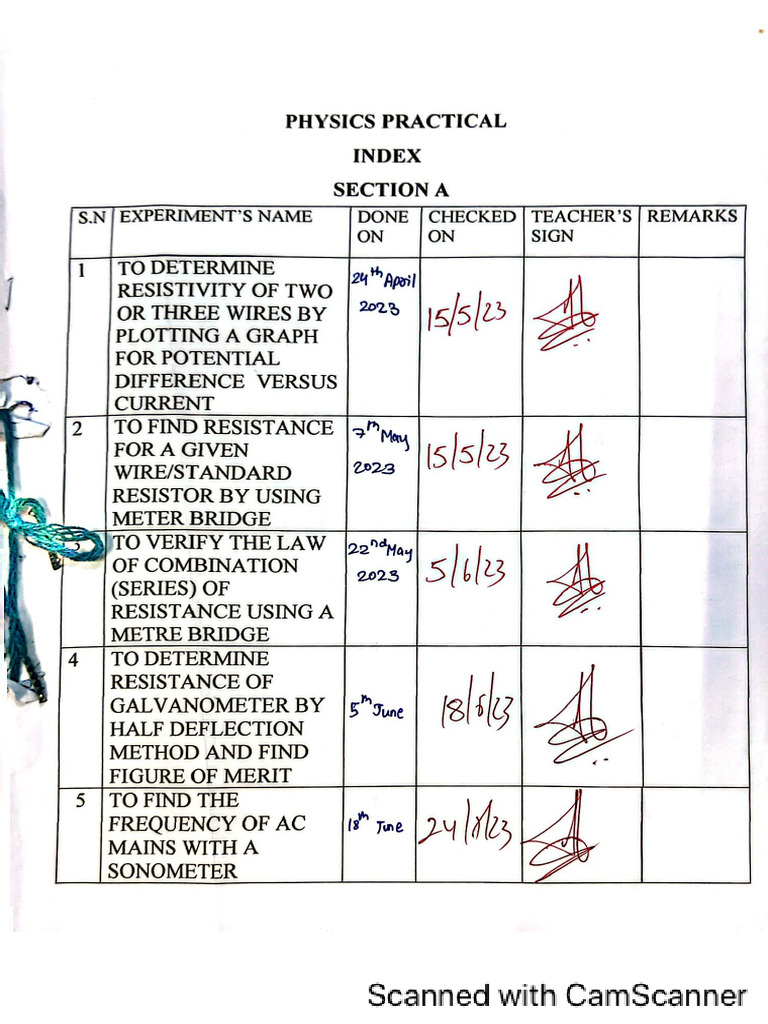 PHYSICS PRACTICAL
INDEX
SECTION A
S.N EXPERIMENT'S NAME DONE ON CHECKED ON TEACHER'S SIGN REMARKS
1 TO DETERMINE
RESISTIVITY OF TWO
OR THREE WIRES BY
PLOTTING A GRAPH
FOR POTENTIAL
DIFFERENCE VERSUS
CURRENT
24th April
2023
15/5/23
2 TO FIND RESISTANCE
FOR A GIVEN
WIRE/STANDARD
RESISTOR BY USING
METER BRIDGE
7th May
2023
15/5/23
TO VERIFY THE LAW
OF COMBINATION
(SERIES) OF
RESISTANCE USING A
METRE BRIDGE
22nd May
2023
5/6/23
4 TO DETERMINE
RESISTANCE OF
GALVANOMETER BY
HALF DEFLECTION
METHOD AND FIND
FIGURE OF MERIT
5th June
18/6/23
5 TO FIND THE
FREQUENCY OF AC
MAINS WITH A
SONOMETER
18th June
Scanned with CamScanner